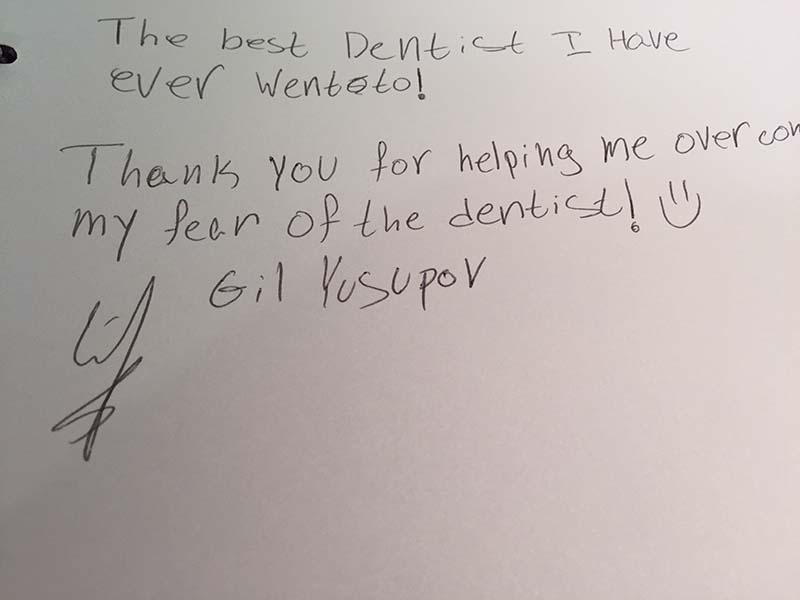 The best Dentist I Have
ever Wentoto!
Thank you for helping me overcom
my fear of the dentist! :)
Gil Yusupov